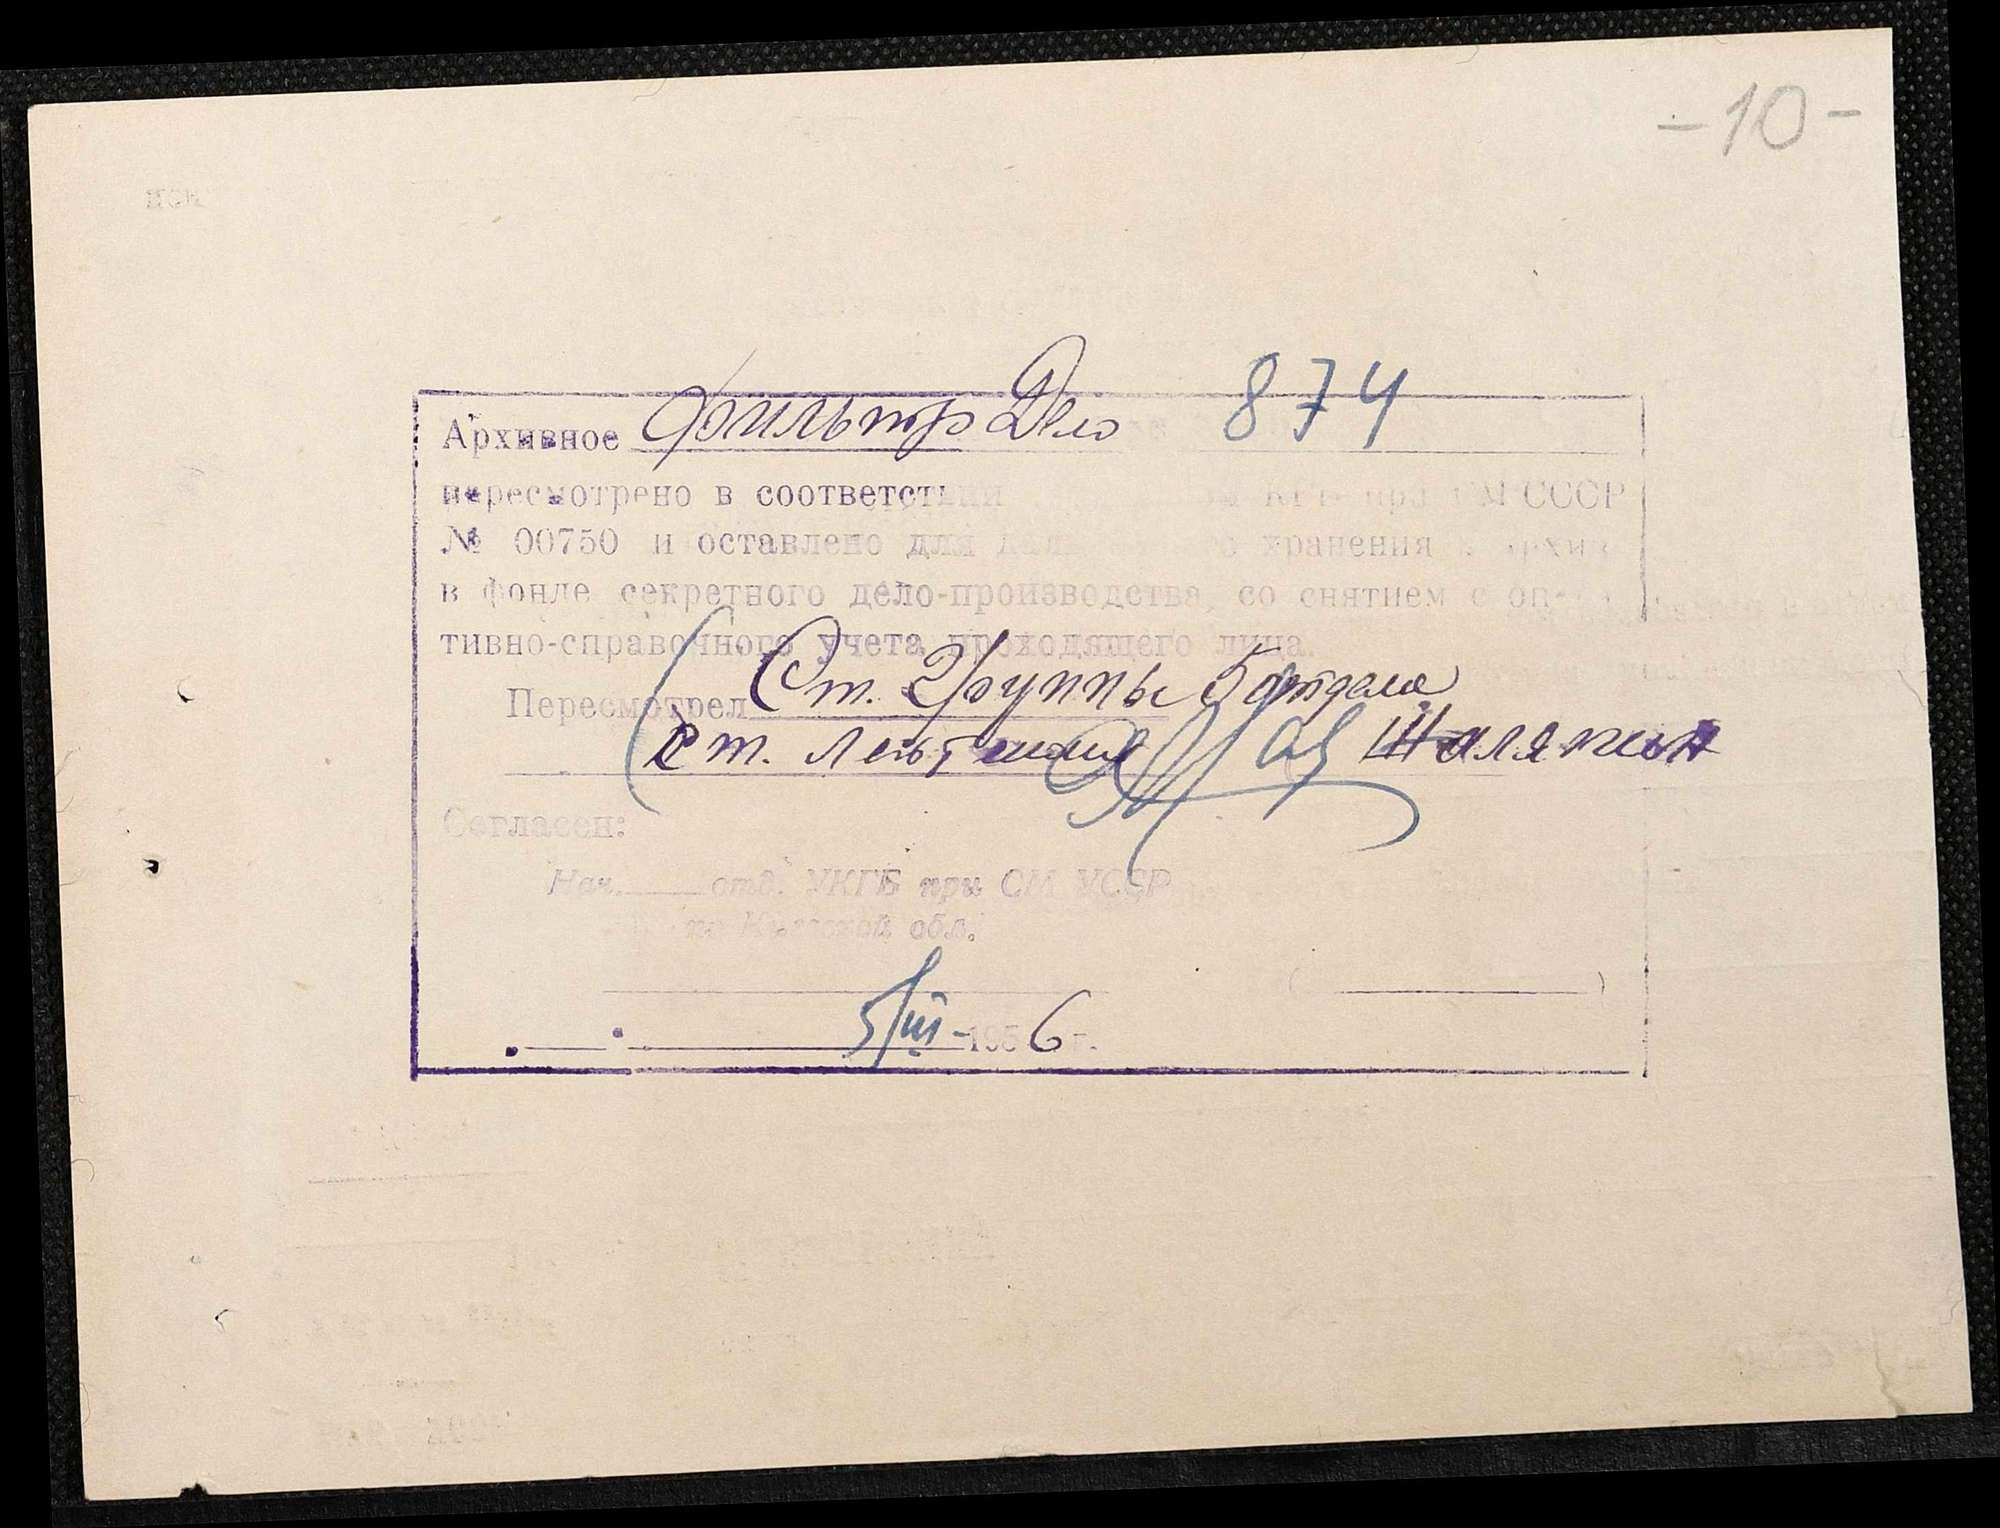 -10-
Архивное фильтр Дело 874
пересмотрено в соответствии КГБ при СМ СССР
№ 00750 и оставлено для хранения в архив
в фонде секретного дело-производства, со снятием с опе-
тивно-справочного учета проходящего лица.
Пересмотрел Ст. Группы 5 отдела
Ст. Лейтенант Шаляпин
Согласен:
Нач. отд. УКГБ при СМ УССР
по Киевской обл.
( )
5/III-1956 г.